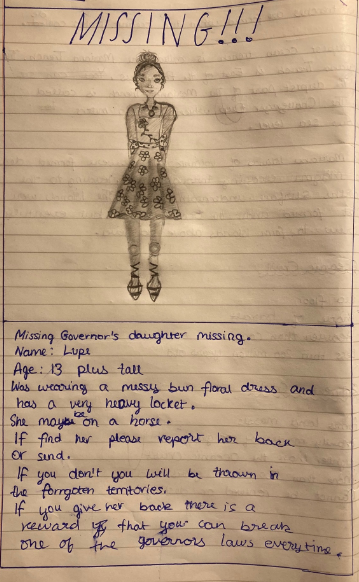 MISSING!!!
Missing Governor's daughter missing.
Name: Lupe
Age: 13 plus tall
Was wearing a messy bun floral dress and
has a very heavy locket.
She maybe on a horse.
If find her please report her back
or send.
If you don't you will be thrown in
the forrgoten territories.
If you give her back there is a
reward that you can break
one of the governors laws everytime.